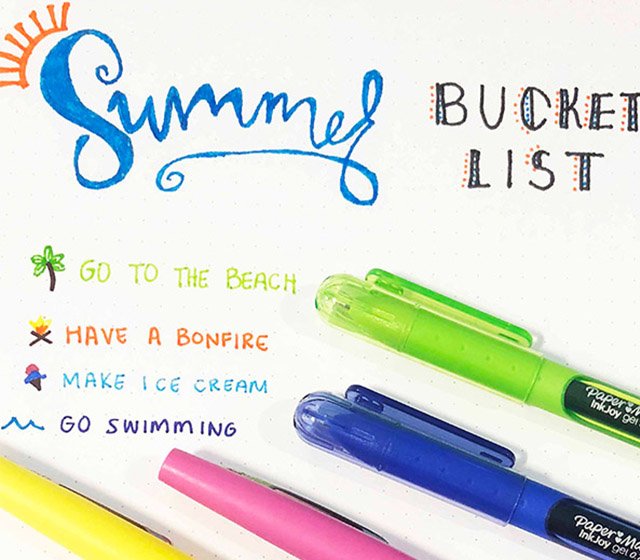 Summer
BUCKET
LIST
GO TO THE BEACH
HAVE A BONFIRE
MAKE ICE CREAM
GO SWIMMING
PAPER MA
InkJoy gel
PAPER MA
InkJoy gel 0.